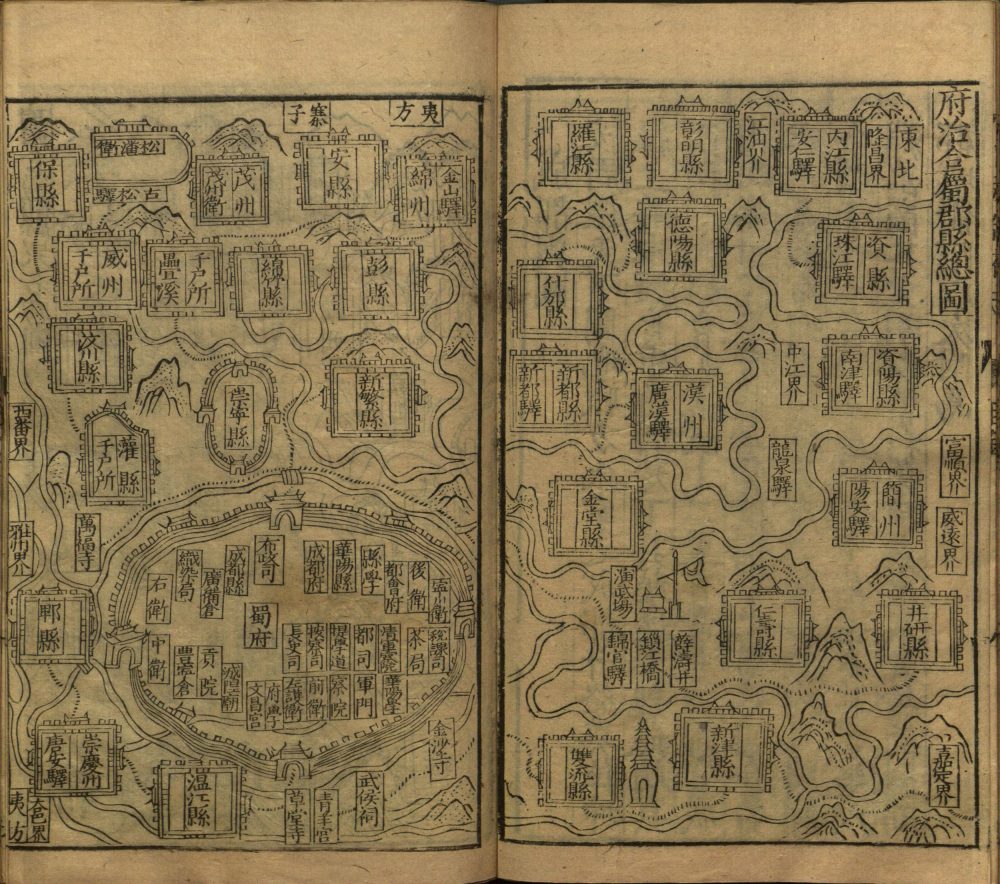 府治合屬郡縣總圖
東北
隆昌界
內江縣
安仁驛
江油界
彰明縣
羅江縣
資縣
珠江驛
德陽縣
什邡縣
資陽縣
南津驛
中江界
漢州
廣漢驛
新都縣
新都驛
富順界
威遠界
龍泉驛
簡州
陽安驛
金堂縣
井研縣
仁壽縣
演武場
薛濤井
鎖江橋
錦官驛
嘉定界
新津縣
雙流縣
夷方
寨子
金山驛
綿州
安縣
茂州
茂州衛
松潘衛
古松驛
保縣
彭縣
績縣
千戶所
疊溪
威州
千戶所
新繁縣
崇寧縣
汶川縣
灌縣
千戶所
西番界
雅州界
萬福寺
郫縣
寧川衛
後衛
都會府
縣學
華陽縣
成都府
布政司
成都縣
廣備倉
織染局
右衛
稅課司
茶局
清軍察
都司
提學道
按察司
長史司
蜀府
中衛
華陽學
軍門
察院
前衛
左護衛
府學
文昌宮
城隍廟
貢院
豐寧倉
金沙寺
武侯祠
青羊宮
草堂寺
溫江縣
崇慶州
唐安驛
大邑界
夷方